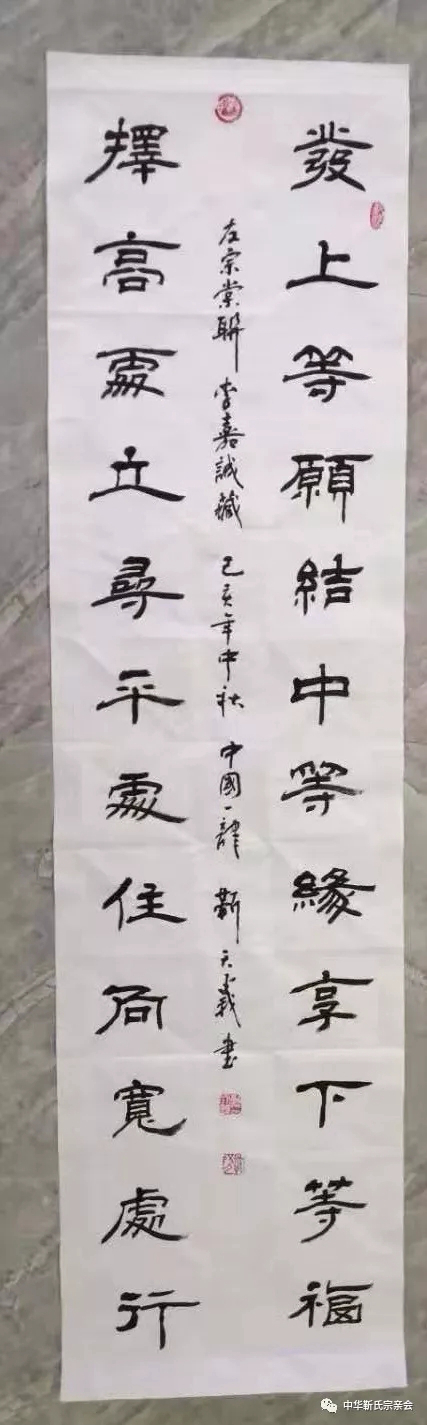 發上等願結中等緣享下等福
擇高處立尋平處住向寬處行
左宗棠聯 李嘉誠藏 己亥年中秋 中國一隸 靳天義書
中华靳氏宗亲会